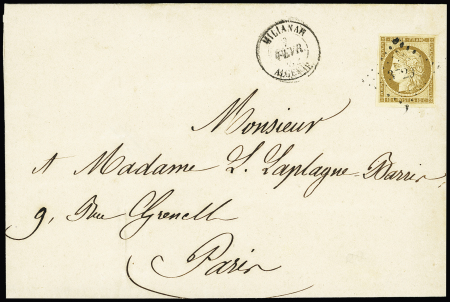 MILIANAH
FEVR
ALGERIE
Monsieur
et Madame L. Laplagne-Barris
9, Rue Grenelle
Paris